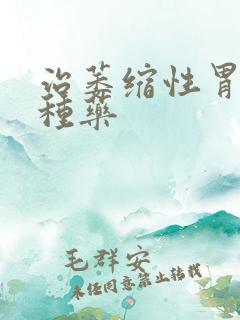 治萎缩性胃
種藥
毛群安
未经同意禁止转载